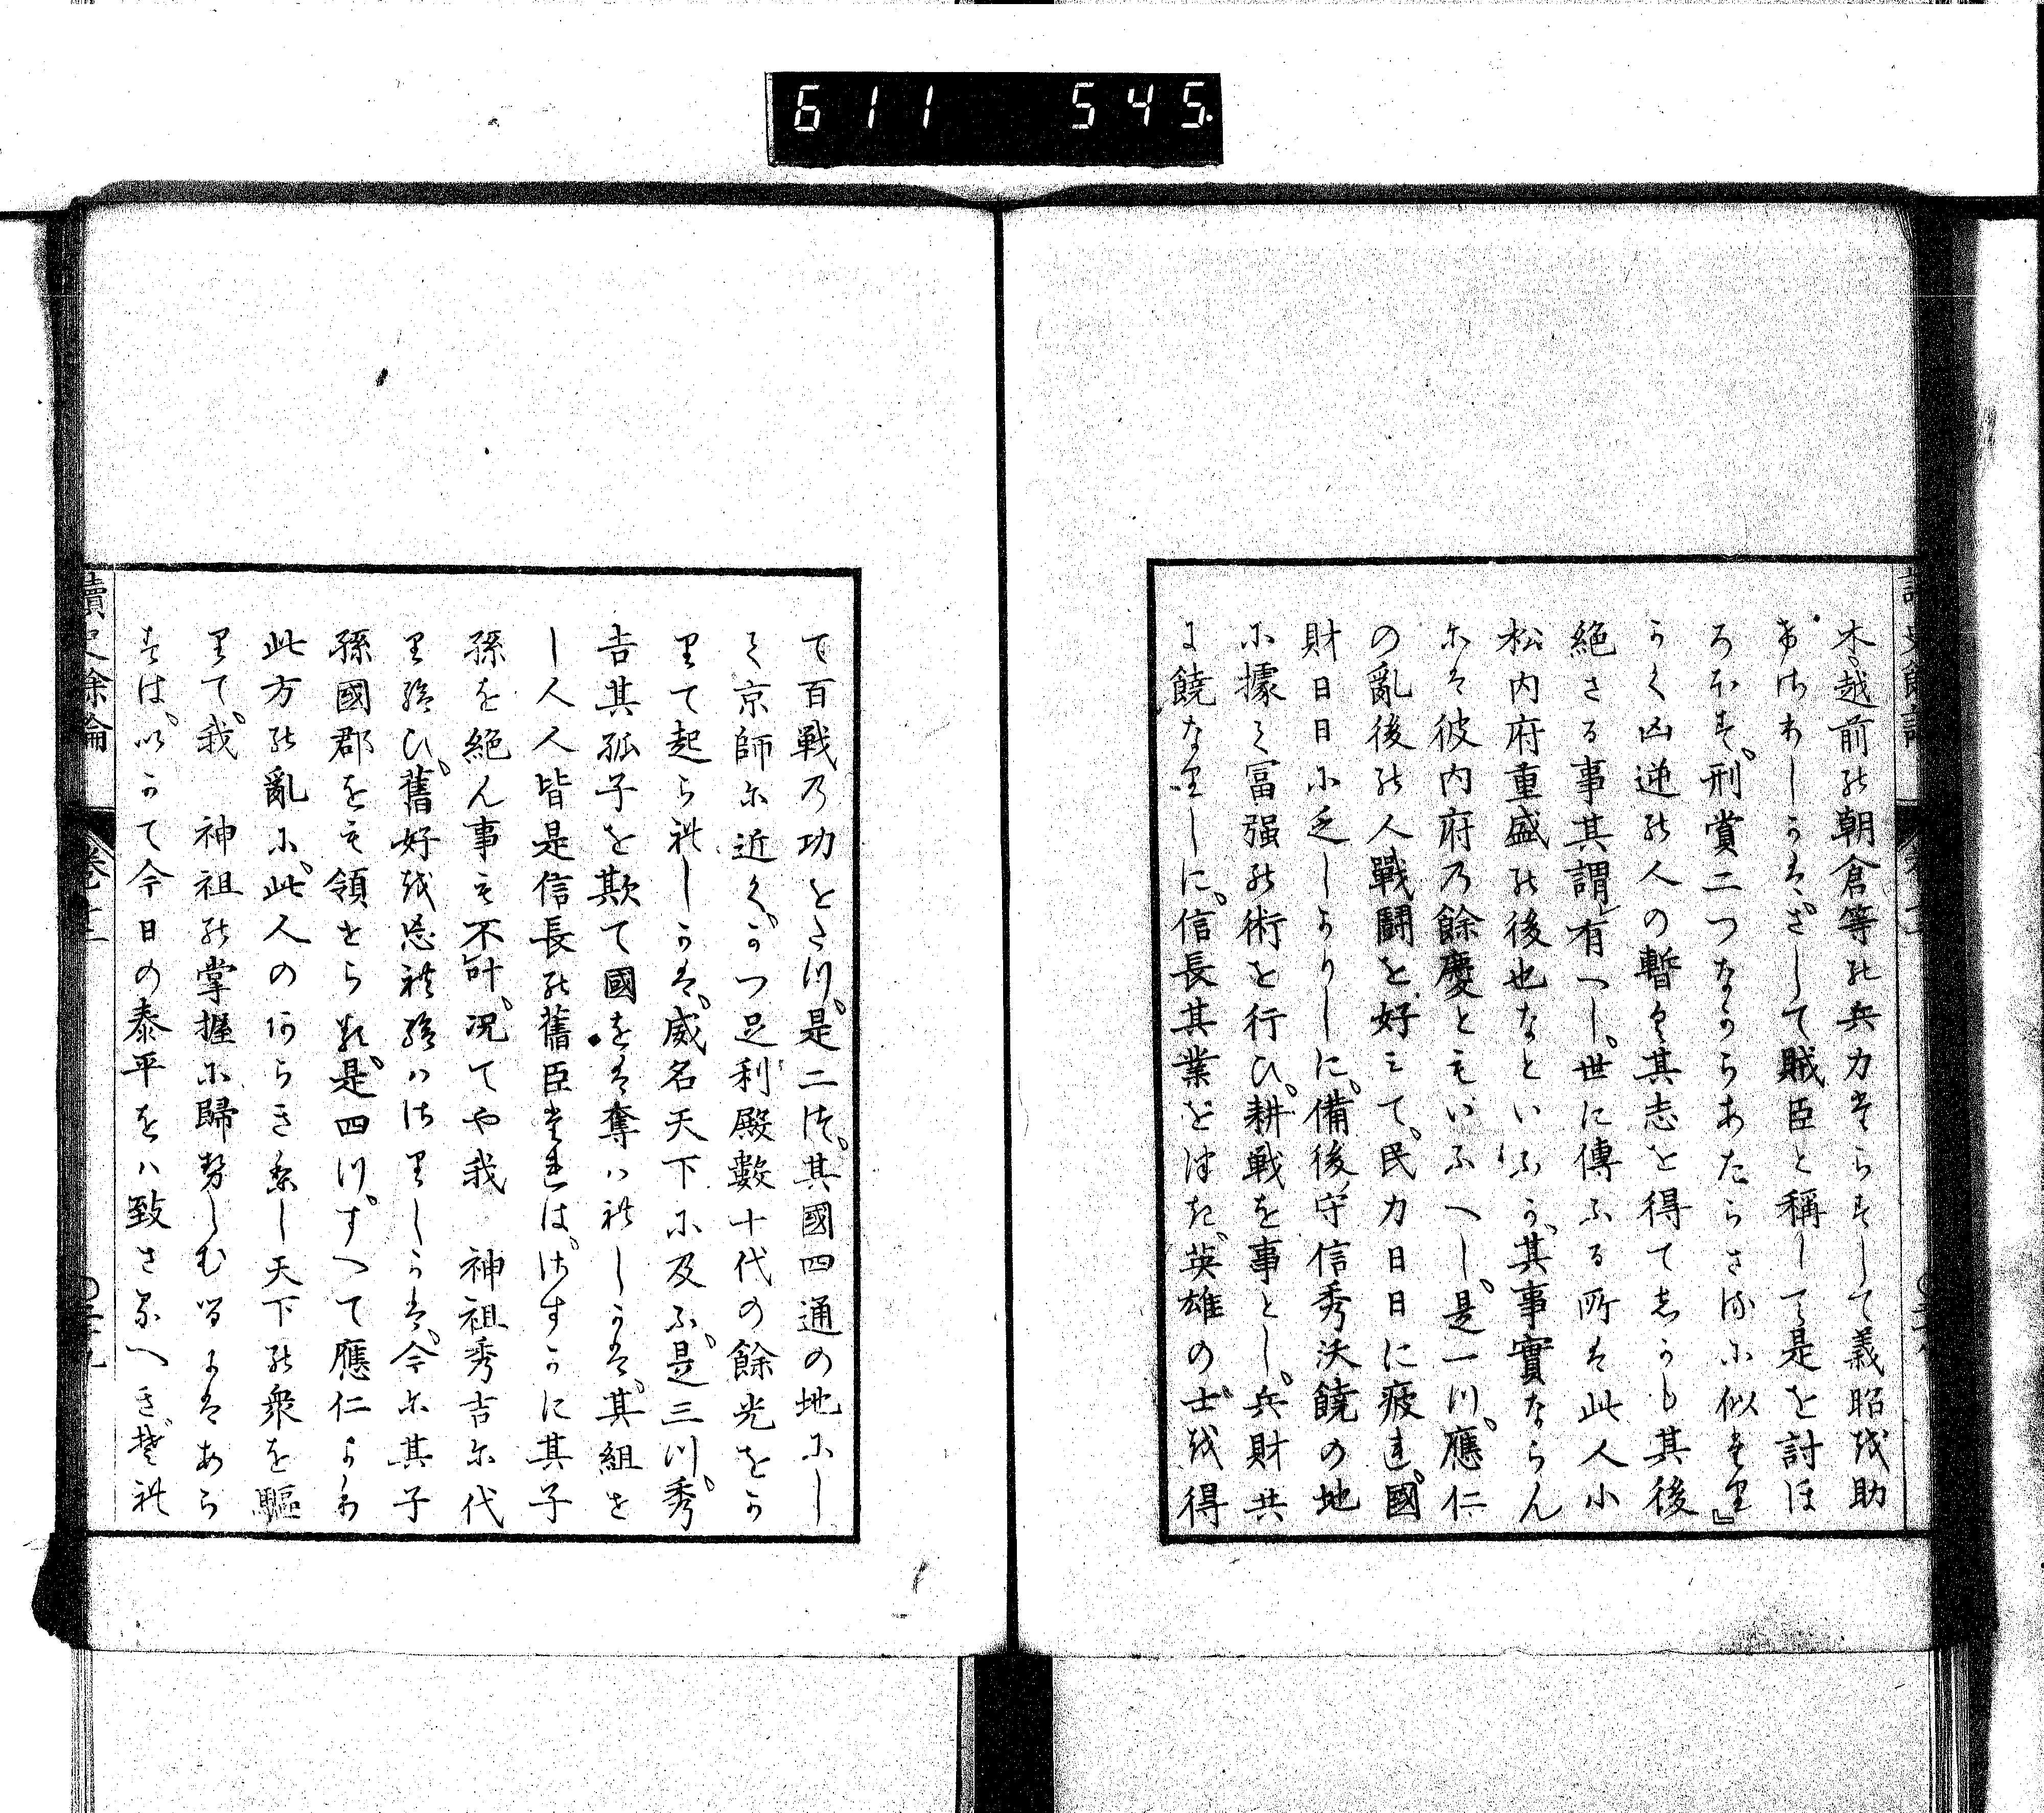 611 545.
木、越前の朝倉等の兵力をからすして義昭を助
まいらせしかは、ざして賊臣と称して是を討ほ
ろほす、刑賞二つなからあたらさるに似たり』
かく凶逆の人の暫も其志を得てしかも其後
絶さる事其謂有へし。世に傳ふる所は此人小
松内府重盛の後也なといふか、其事實ならん
には彼内府の餘慶ともいふへし。是一つ。應仁
の亂後の人戰鬪を好みて、民力日日に疲れ、國
財日日に乏しかりしに。備後守信秀沃饒の地
に據て冨强の術を行ひ、耕戦を事とし。兵財共
に饒なりしに。信長其業をつき、英雄の士を得
て百戰の功をたつ。是二つ。其國四通の地にし
て京師に近く、かつ足利殿數十代の餘光をか
りて起られしかは、威名天下に及ふ。是三つ。秀
吉其孤子を欺て國をは奪はれしかは、其組せ
し人人皆是信長の舊臣たれは、さすかに其子
孫を絶ん事も不叶。况てや我　神祖秀吉に代
り給ひ、舊好を忘れ給はさりしかは、今に其子
孫國郡をも領せらる。是四つ。すへて應仁より
此方の亂に、此人のあらき系し天下の衆を驅
りて、我　神祖の掌握に歸せしむるにはあら
すは、いかて今日の泰平をは致さるへきそれ
讀史餘論　卷十二